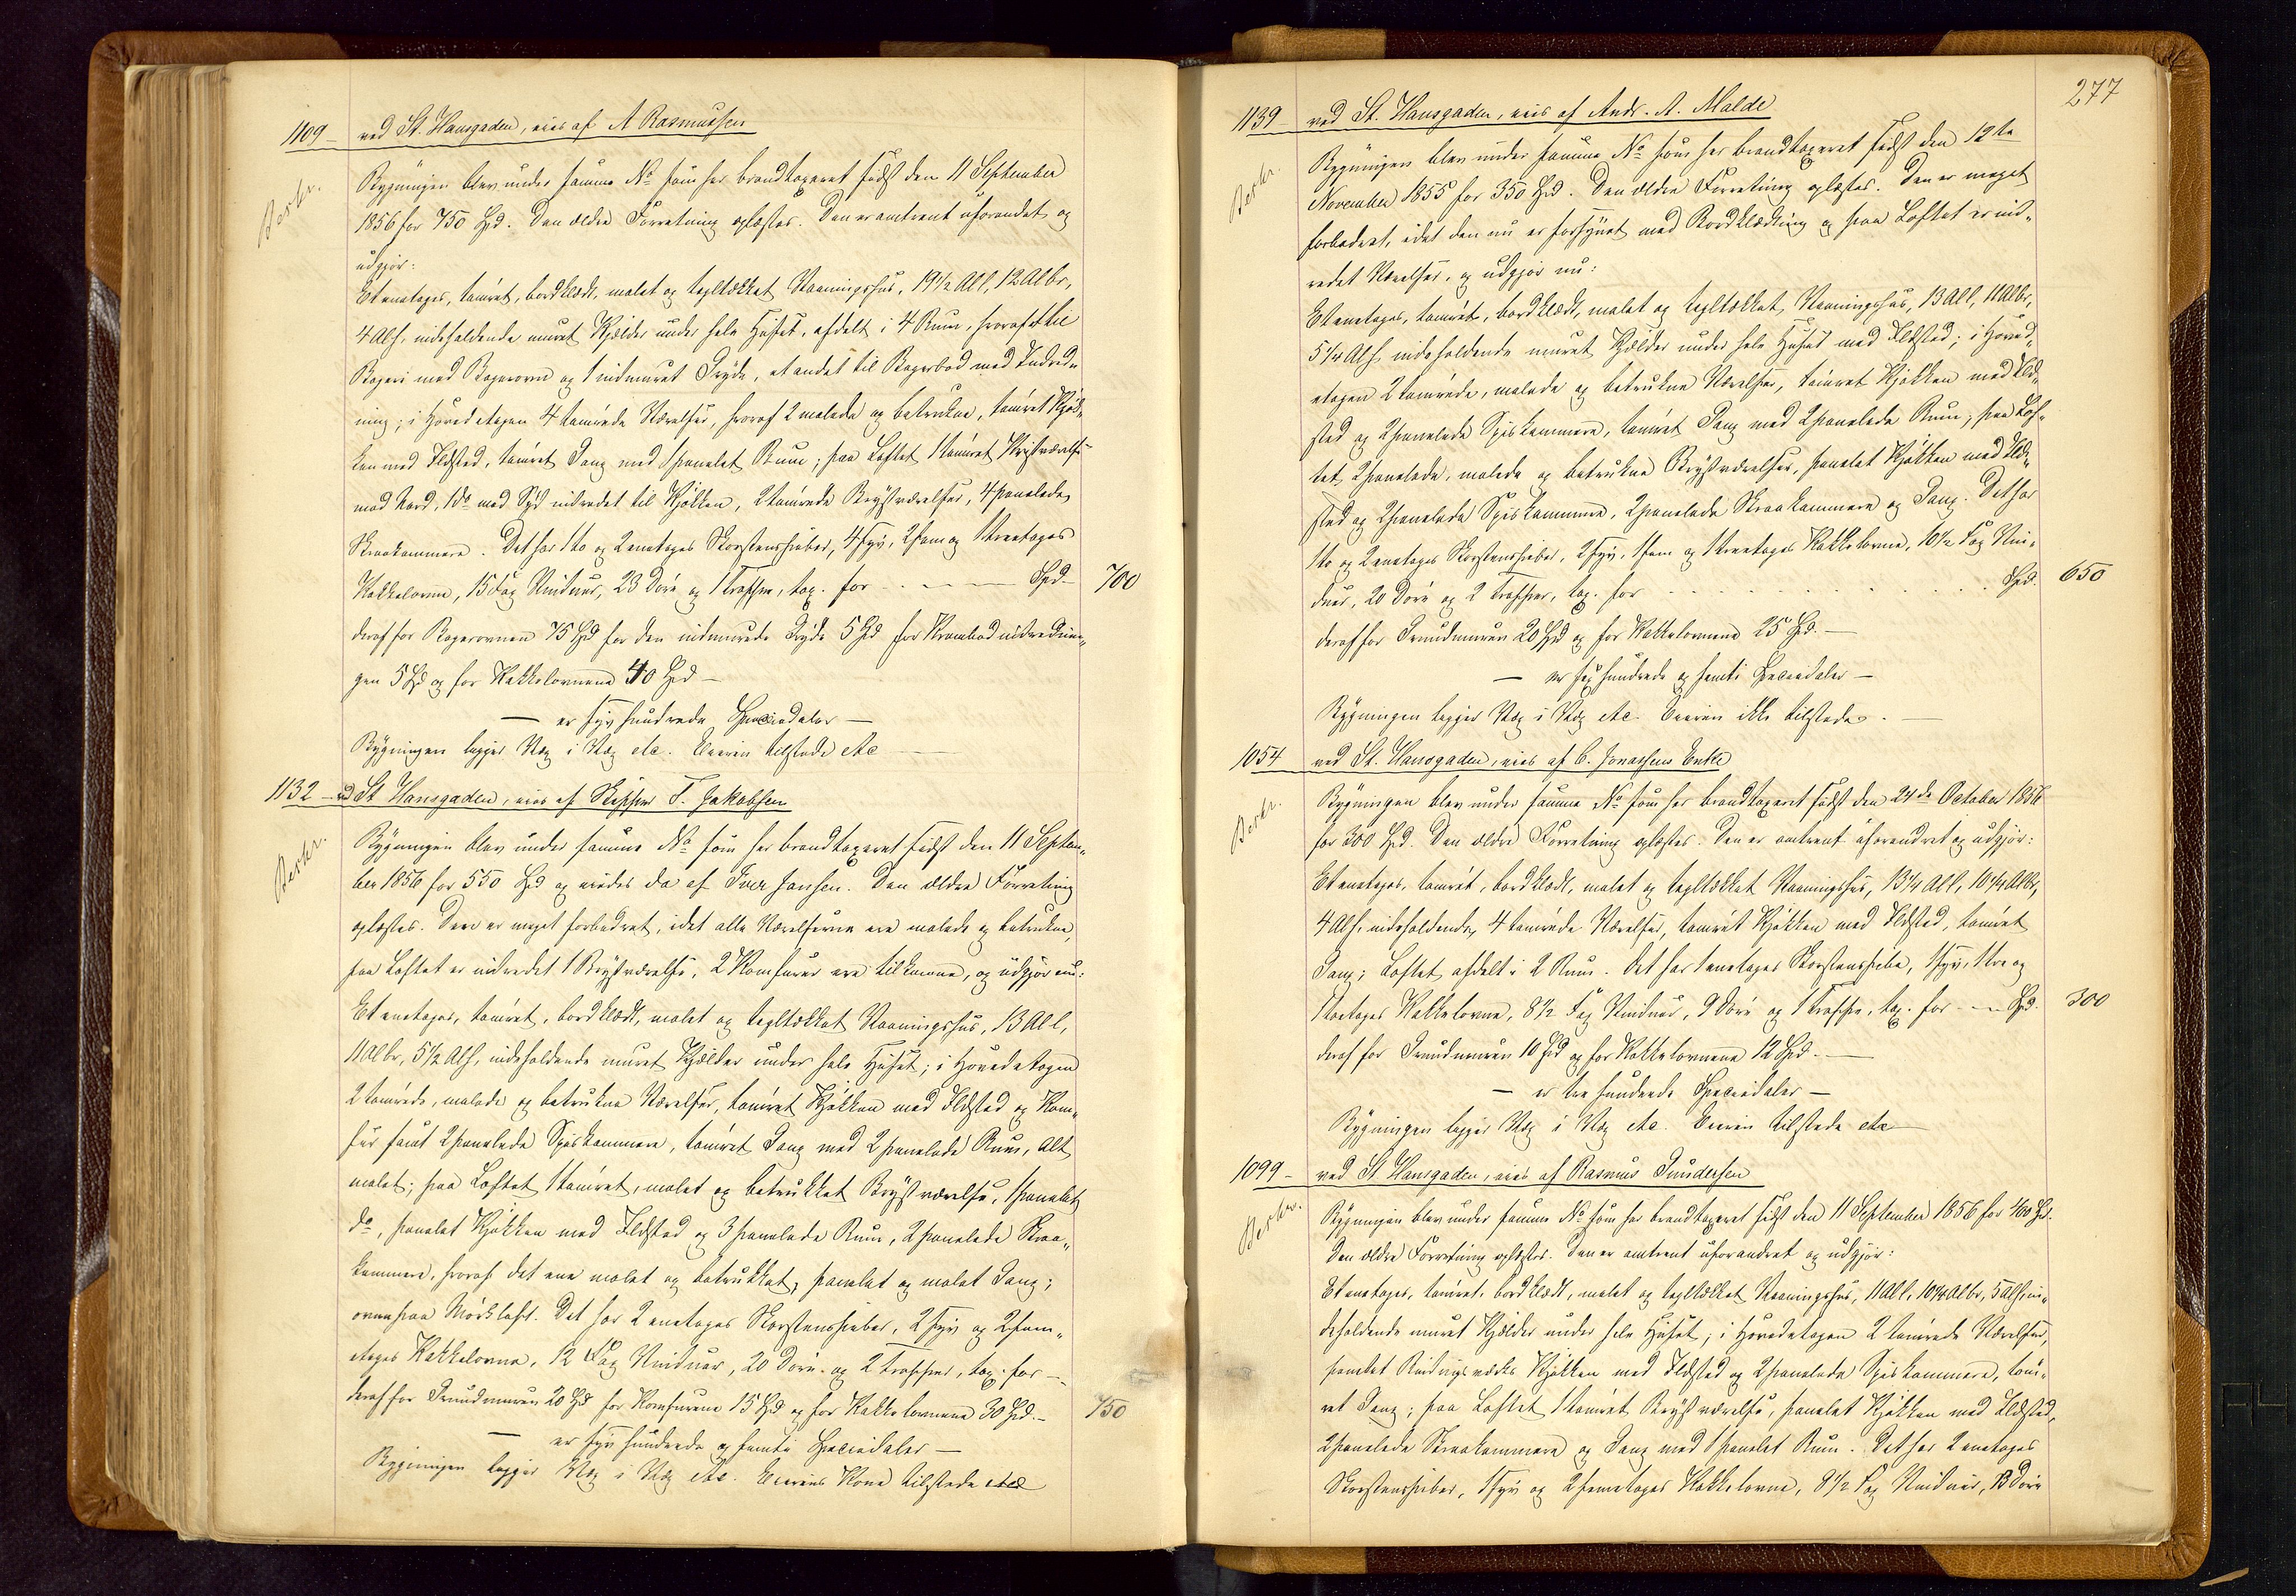 1109 – ved St. Hansgaden, eies af A Rasmussen
Beskr.
Bygningen blev under samme No som her brandtaxeret sidst den 11 September
1856 for 750 Spd. Den ældre Forretning oplæstes. Den er omtrent uforandret og
udgjør:
Et enetages, tømret, bordklædt, malet og tegltækket Vaaningshus, 19½ Al l, 12 Al br,
4 Al h, indeholdende muret Kjelder under hele Huset, afdelt i 4 Rum, hvoraf et til
Bageri med Bagerovn og 1 indmuret Gryde, et andet til Bagerbod med Indred„
ning; i Hovedetagen 4 tømrede Værelser, hvoraf 2 malede og betrukne, tømret Kjøk„
ken med Ildsted, tømret Gang med 1 panelet Rum; paa Loftet 1 tømret Kvistværelse
mod Nord, 1 do mod Syd indredet til Kjøkken, 2 tømrede Brystværelser, 4 panelede
Skraakammere. Det har 1 to og 2 enetages Skorstenspiber, 4 syv, 2 fem og 1 treetages
Kakkelovne, 15 Fag Vinduer, 23 Døre og 1 Trappe, tax. for – – – – Spd – 700
deraf for Bagerovnen 75 Spd for den indmurede Gryde 5 Spd for Krambodindrednin„
gen 5 Spd og for Kakkelovnene 40 Spd –
— er syv hundrede Speciedaler —
Bygningen ligger Væg i Væg etc. Eieren tilstede etc —
1132 – ved St Hansgaden, eies af Skipper T. Jakobsen
Beskr.
Bygningen blev under samme No som her brandtaxeret sidst den 11 Septem„
ber 1856 for 550 Spd og eiedes da af Iver Jansen. Den ældre Forretning
oplæstes. Den er meget forbedret, idet alle Værelserne ere malede og betrukne,
paa Loftet er indredet 1 Brystværelse, 2 Komfurer ere tilkomne, og udgjør nu:
Et enetages, tømret, bordklædt, malet og tegltækket Vaaningshus, 13 Al l,
11 Al br, 5½ Al h, indeholdende muret Kjelder under hele Huset; i Hovedetagen
2 tømrede, malede og betrukne Værelser, tømret Kjøkken med Ildsted og Kom„
fur samt 2 panelede Spiskammere, tømret Gang med 2 panelede Rum, Alt
malet; paa Loftet 1 tømret, malet og betrukket Brystværelse, 1 panelet
do, panelet Kjøkken med Ildsted og 3 panelede Rum, 2 panelede Skraa„
kammere, hvoraf det ene malet og betrukket, panelet og malet Gang;
ovenpaa Mørkloft. Det har 2 enetages Skorstenspiber, 2 syv og 2 fem„
etages Kakkelovne, 12 Fag Vinduer, 20 Døre og 2 Trapper, tax. for –
deraf for Grundmuren 20 Spd for Komfurene 15 Spd og for Kakkelovnene 30 Spd. – 750
— er syv hundrede og femti Speciedaler —
Bygningen ligger Væg i Væg etc. Eierens Kone tilstede etc
277
1139 ved St. Hansgaden, eies af Andr. A. Malde
Beskr.
Bygningen blev under samme No som her brandtaxeret sidst den 12te
November 1855 for 350 Spd. Den ældre Forretning oplæstes. Den er meget
forbedret, idet den nu er forsynet med Bordklædning og paa Loftet er ind„
redet Værelser, og udgjør nu:
Et enetages, tømret, bordklædt, malet og tegltækket Vaaningshus, 13 Al l, 11 Al br,
5¼ Al h, indeholdende muret Kjelder under hele Huset med Ildsted; i Hoved„
etagen 2 tømrede, malede og betrukne Værelser, tømret Kjøkken med Ild„
sted og 2 panelede Spiskammere, tømret Gang med 2 panelede Rum; paa Lof„
tet 2 panelede, malede og betrukne Brystværelser, panelet Kjøkken med Ild„
sted og 2 panelede Spiskammere, 2 panelede Skraakammere og Gang. Det har
1 to og 2 enetages Skorstenspiber, 2 syv, 1 fem og 1 treetages Kakkelovne, 10½ Fag Vin„
duer, 20 Døre og 2 Trapper, tax. for . . . . . . Spd. 650
deraf for Grundmuren 20 Spd og for Kakkelovnene 25 Spd. —
— er sex hundrede og femti Speciedaler —
Bygningen ligger Væg i Væg etc. Eieren ikke tilstede. —
1054 ved St. Hansgaden, eies af C. Jonassens Enke
Beskr.
Bygningen blev under samme No som her brandtaxeret sidst den 24de October 1856
for 300 Spd. Den ældre Forretning oplæstes. Den er omtrent uforandret og udgjør:
Et enetages, tømret, bordklædt, malet og tegltækket Vaaningshus, 13¼ Al l, 10¼ Al br,
4 Al h, indeholdende, 4 tømrede Værelser, tømret Kjøkken med Ildsted, tømret
Gang; Loftet afdelt i 2 Rum. Det har 1 enetages Skorstenspibe, 1 syv, 1 tre og
1 toetages Kakkelovne, 8½ Fag Vinduer, 9 Døre og 1 Trappe, tax. for – – Spd. 300
deraf for Grundmuren 10 Spd og for Kakkelovnene 12 Spd. —
— er tre hundrede Speciedaler —
Bygningen ligger Væg i Væg etc. Eieren tilstede etc —
1099 – ved St Hansgaden, eies af Rasmus Gundersen
Beskr.
Bygningen blev under samme No som her brandtaxeret sidst den 11 September 1856 for 400 Spd.
Den ældre Forretning oplæstes. Den er omtrent uforandret og udgjør:
Et enetages, tømret, bordklædt, malet og tegltækket Vaaningshus, 11 Al l, 10¼ Al br, 5 Al h, in„
deholdende muret Kjelder under hele Huset; i Hovedetagen 2 tømrede Værelser,
panelet Bindingsværks Kjøkken med Ildsted og 2 panelede Spiskammere, tøm„
ret Gang; paa Loftet 1 tømret Brystværelse, panelet Kjøkken med Ildsted,
2 panelede Skraakammere og Gang med 1 panelet Rum. Det har 2 enetages
Skorstenspiber, 1 syv og 2 femetages Kakkelovne, 8½ Fag Vinduer, 13 Døre